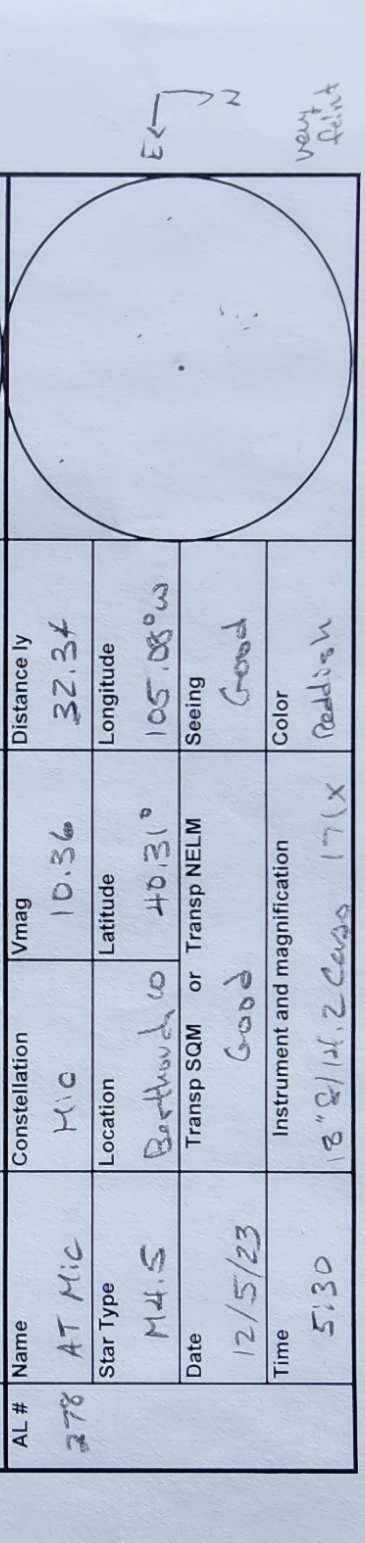 AL #
278
Name
AT Mic
Constellation
Mic
Vmag
10.36
Distance ly
32.34
Star Type
M4.5
Location
Berthoud, CO
Latitude
40.31°
Longitude
105.08°W
Date
12/5/23
Transp SQM or Transp NELM
Good
Seeing
Good
Time
5:30
Instrument and magnification
18" f/4.2 171X
Color
Reddish
E
N
very
faint